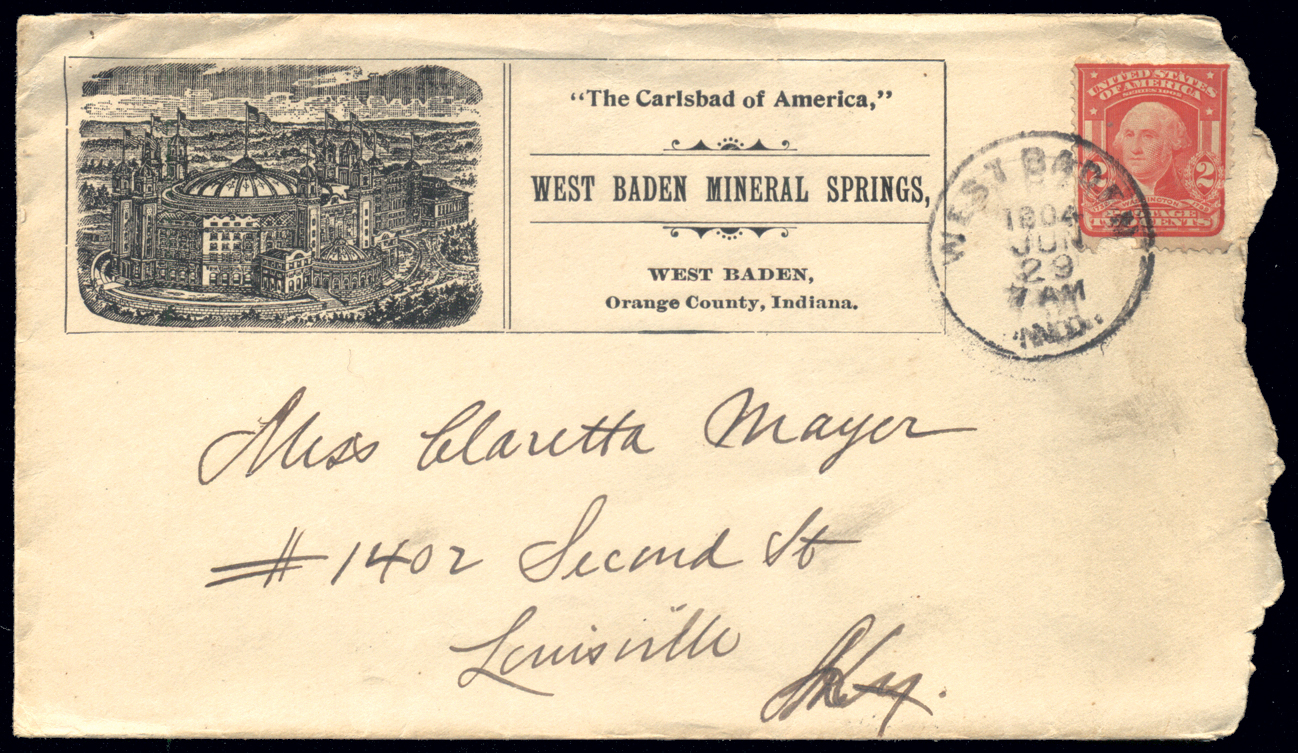 “The Carlsbad of America,”
WEST BADEN MINERAL SPRINGS,
WEST BADEN,
Orange County, Indiana.
UNITED STATES
OF AMERICA
SERIES 1902
2 2
WASHINGTON
POSTAGE
TWO CENTS
WEST BADEN
1904
JUN
29
7 AM
IND.
Miss Claretta Mayer
# 1402 Second St
Louisville
Ky.